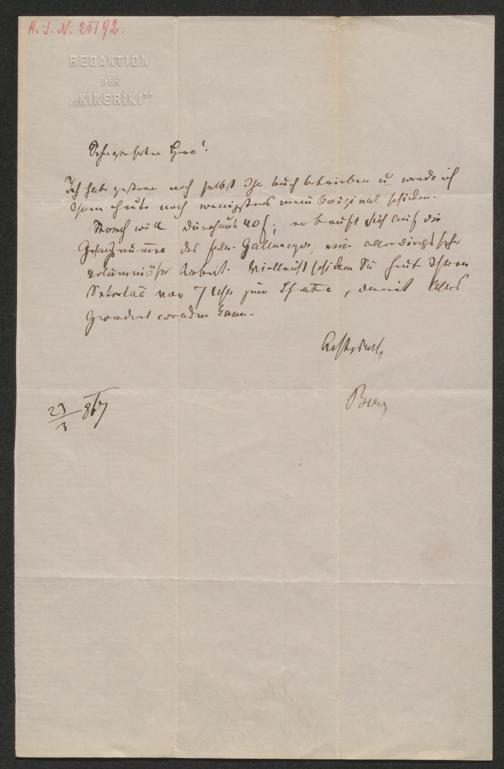 H. I. N. 25192.
REDAKTION
DES
„KIKERIKI"
Sehr geehrter Herr!
Ich habe gestern noch selbst Ihr Buch betrieben u werde ich
Ihnen heute noch wenigstens mein Original schicken.
Storch will durchaus 40 f; er beruft sich auf die
Gesangsnummer des Frln. Gallmeyer, eine allerdings sehr
voluminöse Arbeit. Vielleicht schicken Sie heut Ihren
Sekretär vor 7 Uhr zum Theater, damit Alles
geordnet werden kann.
Achtungsvoll
Berg
23/3 867